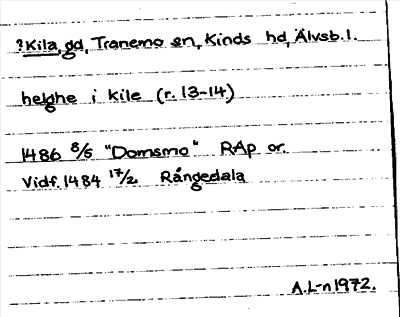 ?Kila, gd, Tranemo sn, Kinds hd, Älvsb. l.
helghe i Kile (r. 13-14)
1486 8/5 "Domsmo" RAp or.
Vidf. 1484 17/2 Rångedala
A.L-n 1972.